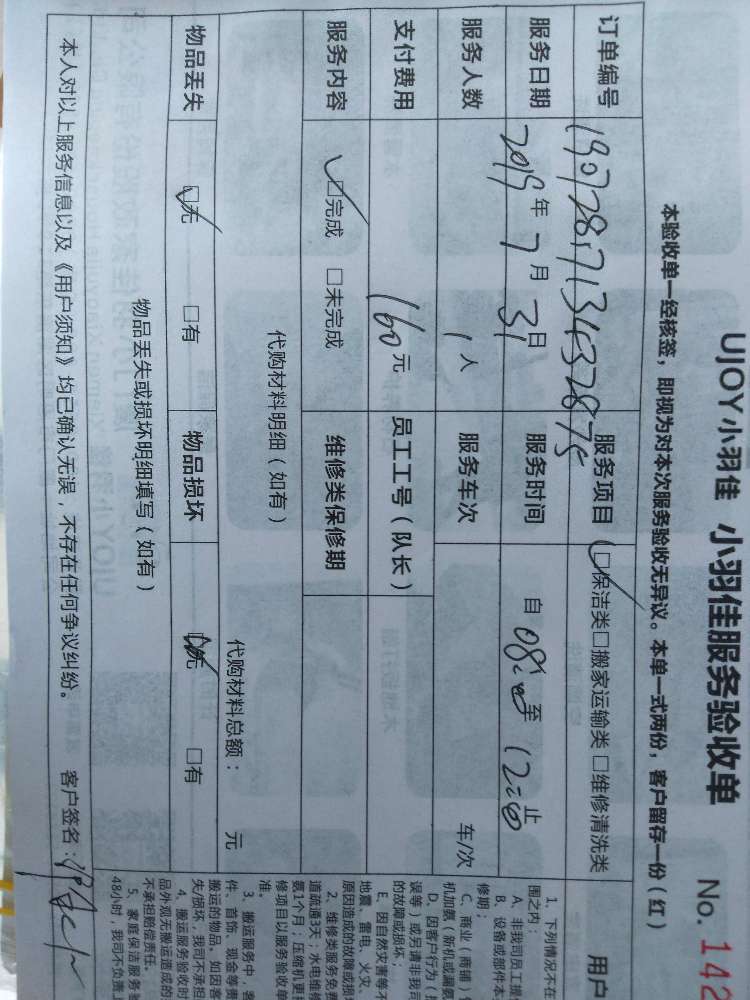 UJOY小羽佳 小羽佳服务验收单 No. 142
本验收单一经核签，即视为对本次服务验收无异议。本单一式两份，客户留存一份（红）
订单编号 服务项目 □保洁类□搬家运输类 □维修清洗类
服务日期 2019 年 7 月 31 日 服务时间 自 08:00 至 12:00 止
服务人数 1 人 服务车次 车/次
支付费用 160 元 员工工号（队长）
服务内容 □完成 □未完成 维修类保修期
代购材料明细（如有） 代购材料总额： 元
物品丢失 □无 □有 物品损坏 □无 □有
物品丢失或损坏明细填写（如有）
本人对以上服务信息以及《用户须知》均已确认无误，不存在任何争议纠纷。 客户签名：
用户
1、下列情况不在
围之内：
A、非我司员工搬
B、设备或部件本
修期；
C、商业（商铺）
机加氨（新机或漏氨
D、因客户行为（
误等）或另请非我司
的故障或损坏；
E、因自然灾害等不
地震、雷电、火灾、
原因造成的故障或损
2、维修类服务免费
道疏通3天；水电维修
氨1个月；压缩机更换
修项目以服务验收单
准。
3、搬运服务中，客
件、首饰、现金等贵
搬运的物品。如因客
失/损坏，我司不承担
4、搬运服务验收时
品外观无搬运造成的
不承担赔偿责任。
5、家庭保洁服务验
48小时，我司不负责上